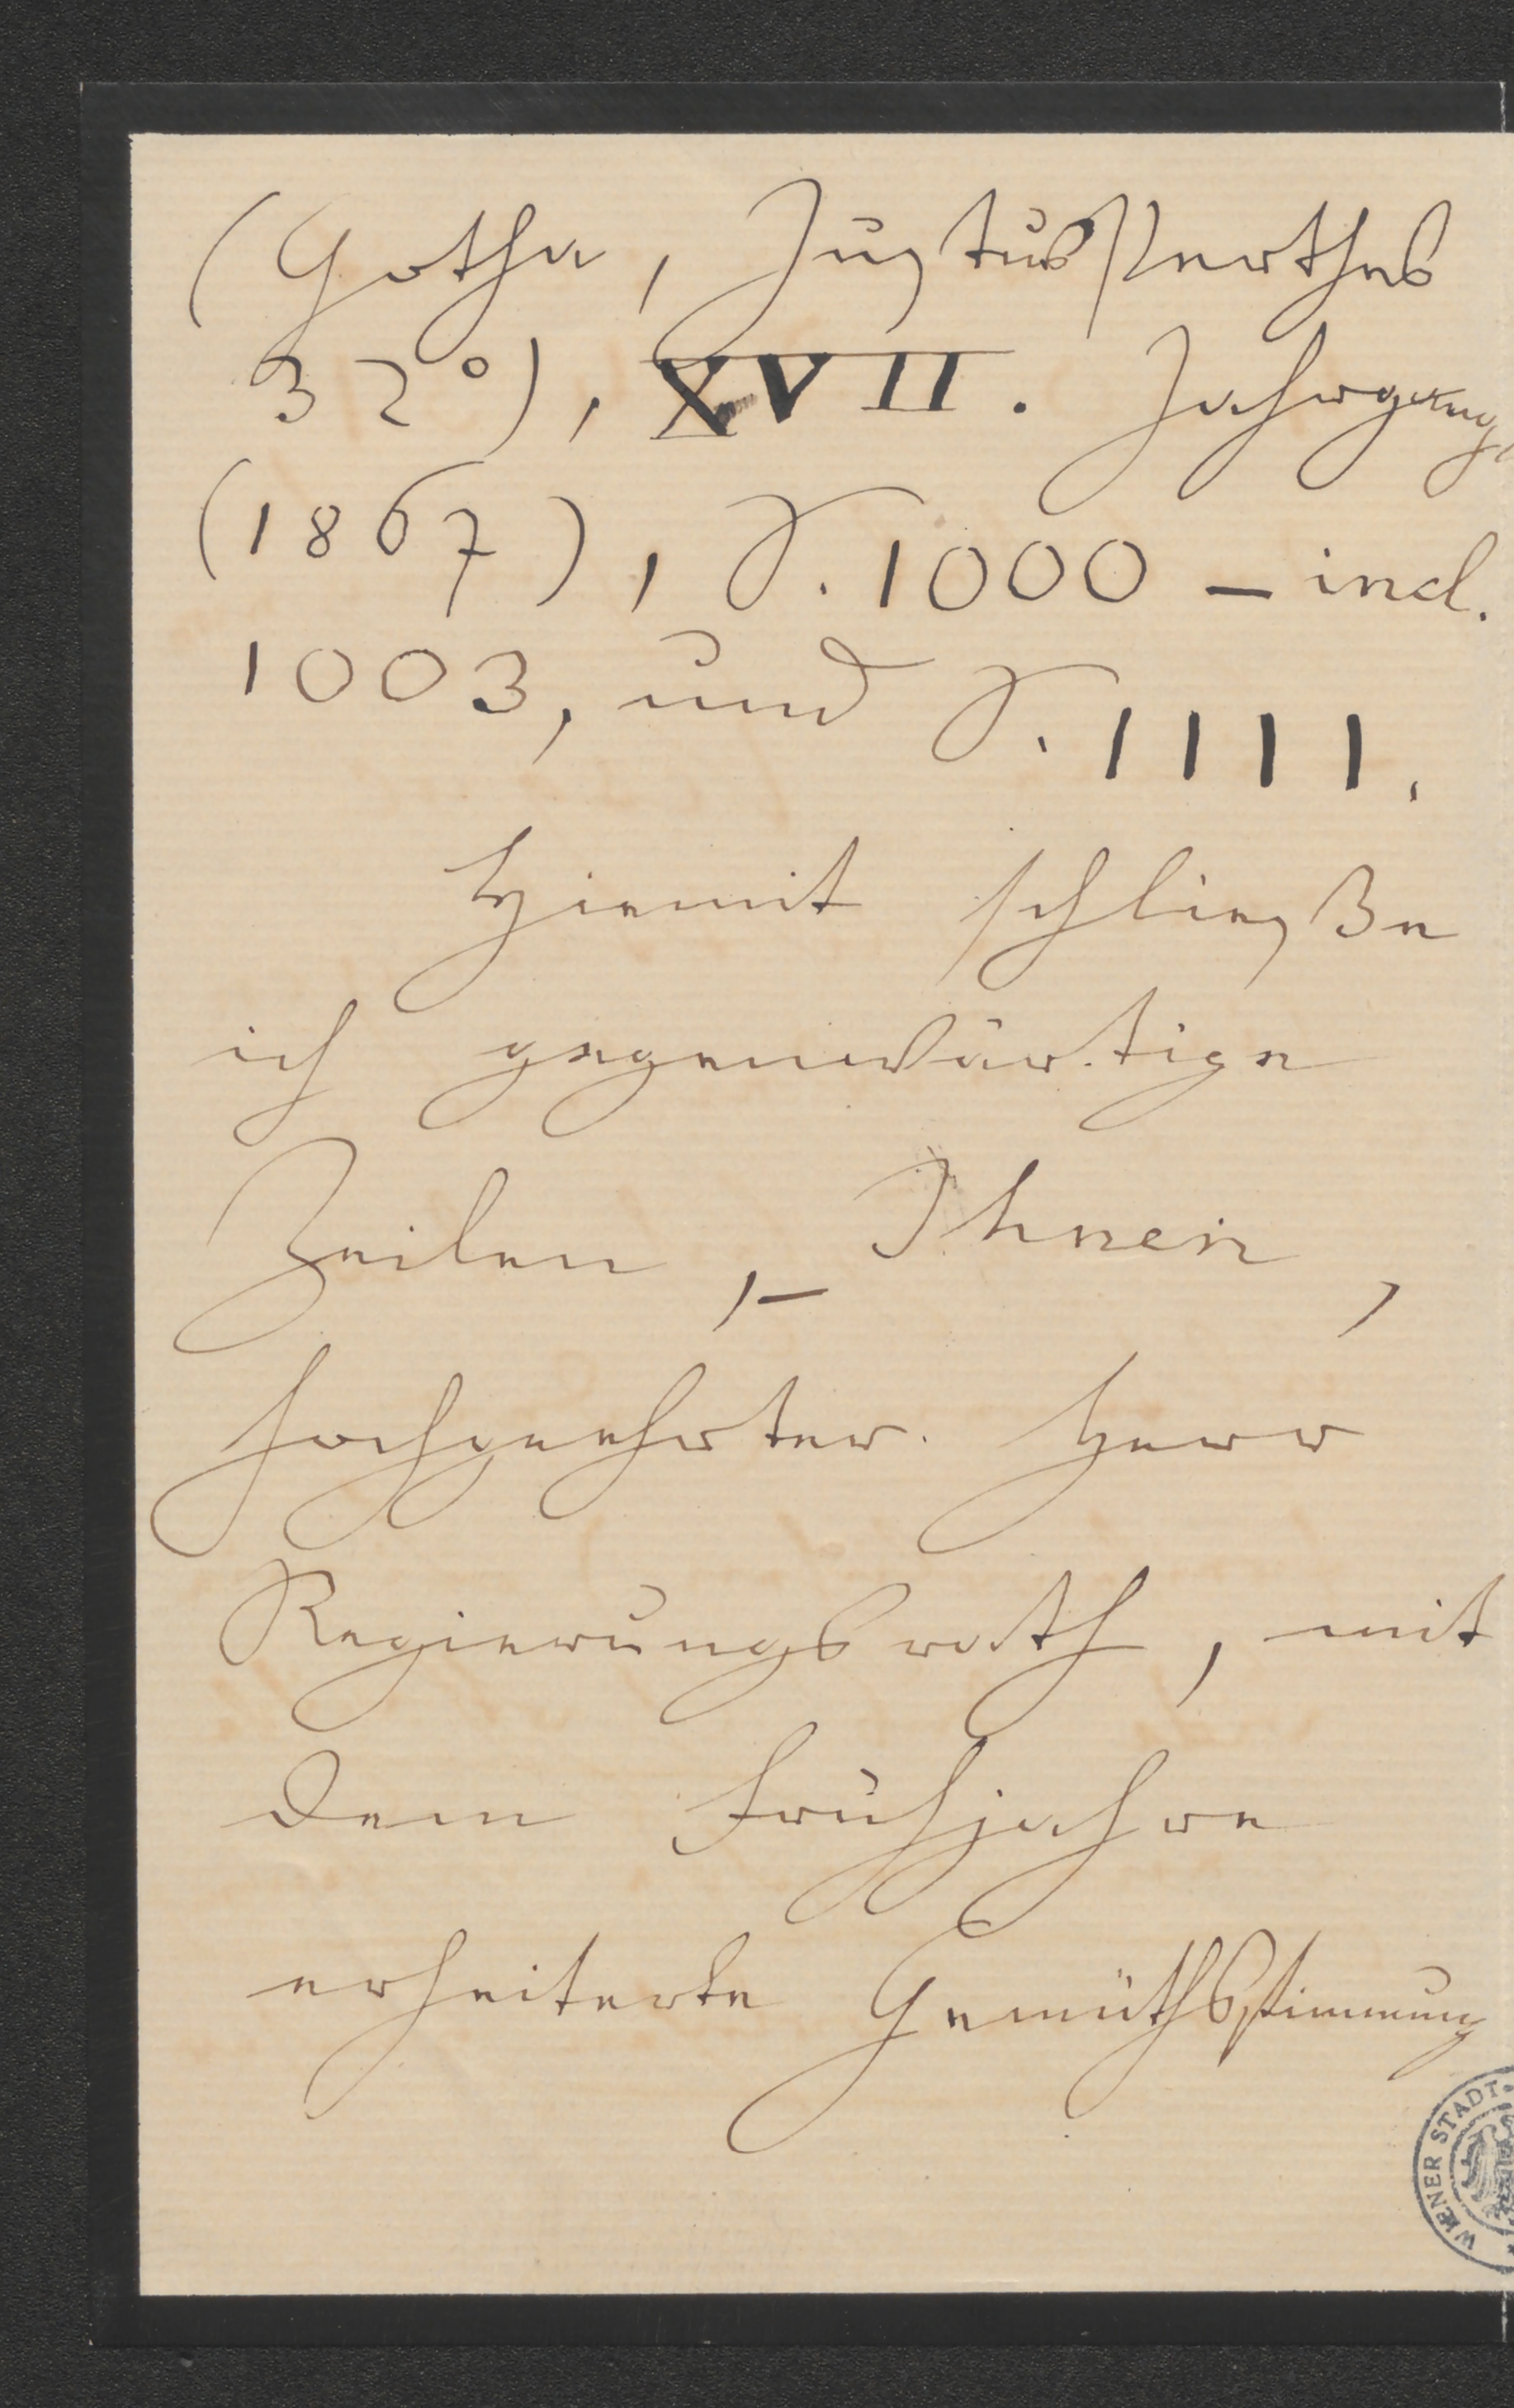 (Gotha, Justus Perthes
32°), XVII. Jahrgang
(1867), S. 1000 – incl.
1003, und S. 1111.
Hiemit schließe
ich gegenwärtige
Zeilen, – Ihnen,
hochgeehrter Herr
Regierungsrath, mit
dem Frühjahre
erheiterte Gemüthsstimmung
WIENER STADT-